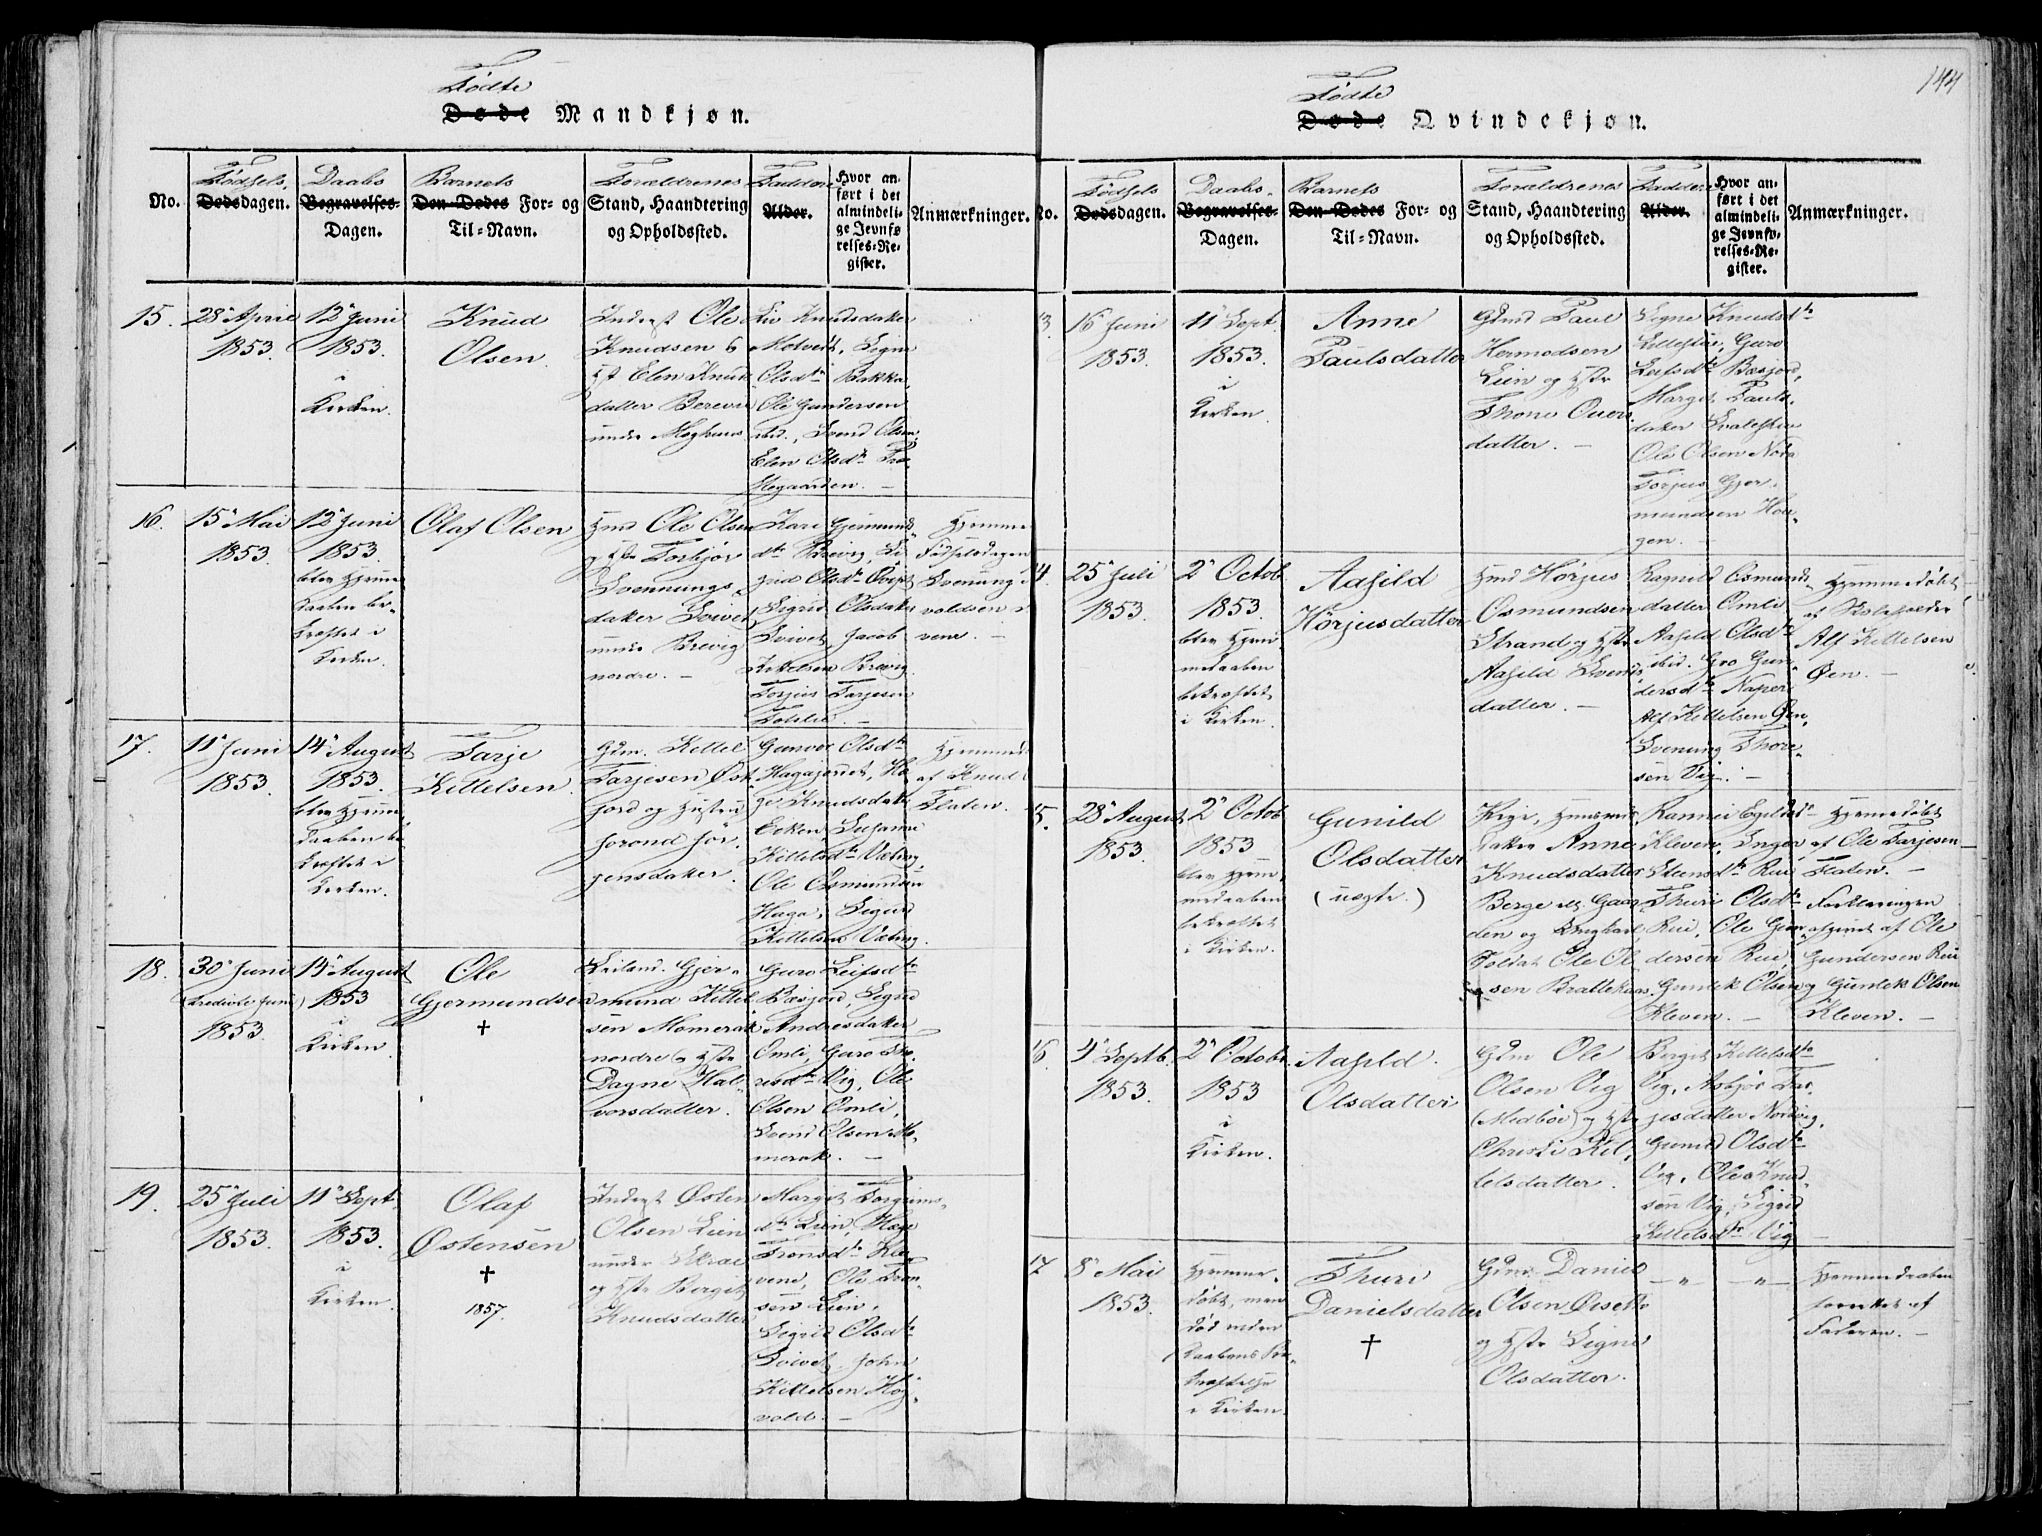 144
Fødte
Døde Mandkjøn.
No.
Fødsels
Dødsdagen.
Daabs
Begravelses-
Dagen.
Barnets
Den Dødes For- og
Til-Navn.
Forældrenes
Stand, Haandtering
og Opholdssted.
Faddere
Alder.
Hvor an-
ført i det
almindeli-
ge Jevnfø-
relses-Re-
gister.
Anmærkninger.
15.
28de April
1853.
12te Juni
1853.
i
Kirken.
Knud
Olsen.
Inderst Ole
Knudsen
Elen Knuds
datter
under Moghus
Liv Knudsdatter
Signe
Olsdtr Bakka
Ole Gundersen
ibid., Svend Olsen
Elen Olsdtr Præ-
stegaarden. —
16.
15de Mai
1853.
12te Juni
1853.
blev Hjemme
daaben be-
kræftet i
Kirken.
Olaf Olsen
Hmd Ole Olsen
og Hstr Torbjør
Svennungs-
datter Svivet
under Brevig
nordre. —
Kari Gjermunds
dtr Brevig,
Olsdtr
Sigrid Olsdatter
Svivet, Jacob
Kittelsen Brevig
Torjus Tarjesen
Hjemme
Fødselsdagen
Svenung
voldsen
17.
11te Juni
1853.
14de August
1853.
blev Hjemme
daaben be
kræftet i
Kirken.
Tarje
Kittelsen.
Gdm. Kittel
Tarjesen Øst-
jord og Hustru
Jorond Jør-
gensdatter.
Gunvor Olsdtr
Hagajordet, He
ge Knudsdatr
Susanne
Kittelsdtr
Ole Osmundsen
Haga, Sigurd
Kittelsen
Hjemmed
af Knud
Flaten.
18.
30te Juni
(tredivte Juni)
1853.
14de August
1853
i
Kirken.
Ole
Gjermundsen
†
Leiland. Gjer-
mund Kittel
sen Momrak
nordre og Hstr
Dagne Hal-
vorsdatter.
Guro Leifsdtr
Bæsjord, Sigrid
Andresdatter
Omli, Guro Tho-
resdtr Vig, Ole
Olsen Omli,
Svend Olsen Mo-
merak. —
19.
25de Juli
1853.
11te Sept.
1853.
i
Kirken.
Olaf
Østensen
†
1857.
Inderst Østen
Olsen Lien
under
og Hstr Bergit
Knudsdatter
Margit Torgrims-
dtr Lien, Hæge
Tronsdtr Kle-
vene, Ole Tron-
sen Lien,
Sigrid Olsdtr
Svivet, John
Kittelsen Hog-
vold. —
Fødte
Døde Qvindekjøn.
No.
Fødsels
Dødsdagen.
Daabs-
Begravelses-
Dagen.
Barnets
Den Dødes For- og
Til-Navn.
Forældrenes
Stand, Haandtering
og Opholdssted.
Faddere
Alder.
Hvor an-
ført i det
almindeli-
ge Jevnfø-
relses-Re-
gister.
Anmærkninger.
13.
16de Juni
1853.
11te Sept.
1853.
i
Kirken.
Anne
Paulsdatter
Gdmd Paul
Hermodsen
Lien og Hstr
Thone Ouers
datter. —
Signe Knudsdtr
Lillestue, Guro
Leifsdtr Bæsjord,
Margit Pauls-
datter
Ole Olsen Nora
Torjus Gjer-
mundsen Hou-
gen. —
14.
25de Juli
1853.
2de Octob.
1853.
blev Hjem-
medaaben
bekræftet
i Kirken.
Aasild
Hørjusdatter
Hmd Hørjus
Osmundsen
Strand og Hstr
Aasild Svends
datter. —
Ragnild Osmunds-
datter Omli
Aasild Olsdtr
ibid. Gro Gun-
dersdtr Naper
Alf Kittelsen Øen,
Svenung Thore-
sen Vig. —
Hjemmedøbt
af Skoleholder
Alf Kittelsen
Øen. —
15.
28de August
1853.
2de Octob.
1853
blev Hjem-
medaaben
bekræftet
i Kirken.
Gunild
Olsdatter
(uægte.)
Pige, Huusmds
datter Anne
Knudsdatter
Berge
den og Ungkarl
Soldat Ole Ol
sen Brattekaas.
Rannei Egilsdtr
Kleven, Inger
Steensdtr Rui
Thuri Olsdtr
Rui, Ole Gun-
dersen Rui,
Gunlek Olsen
Kleven. —
Hjemmedøbt
af Ole Tarjesen
Flaten. —
Forklaringen
afgivet af Ole
Gundersen Rui
og Gunlek Olsen
Kleven. —
16.
4de Septb.
1853.
2de Octob.
1853
i
Kirken.
Aasild
Olsdatter
Gdm Ole
Olsen Vig
(Medbøe) og Hstr
Christi Kit-
telsdatter.
Bergit Kittelsdtr
Vig, Asbjør Tar-
jesdatter Nordvig,
Gunild Olsdtr
Vig, Ole Knud-
sen Vig, Sigrid
Kittelsdtr Vig
17
8de Mai
1853.
Hjemme-
døbt, men
død inden
Daabens Be-
kræftelse
i Kirken.
Thuri
Danielsdatter
†
Gdm Daniel
Olsen
og Hstr Signe
Olsdatter.
— „ — „ —
Hjemmedaaben
forrettet af
Faderen. —